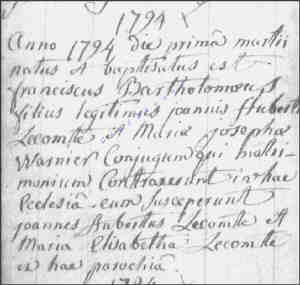 1794
Anno 1794 die primâ martii
natus et baptisatus est
franciscus Bartholomeus
filius legitimus joannis huberti
Lecomte et Mariæ josephæ
Warnier Conjugum qui matri-
monium Contraxerunt in hac
Ecclesiâ. eum susceperunt
joannes hubertus Lecomte et
Maria Elisabetha Lecomte
ex hac parochiâ.
1794